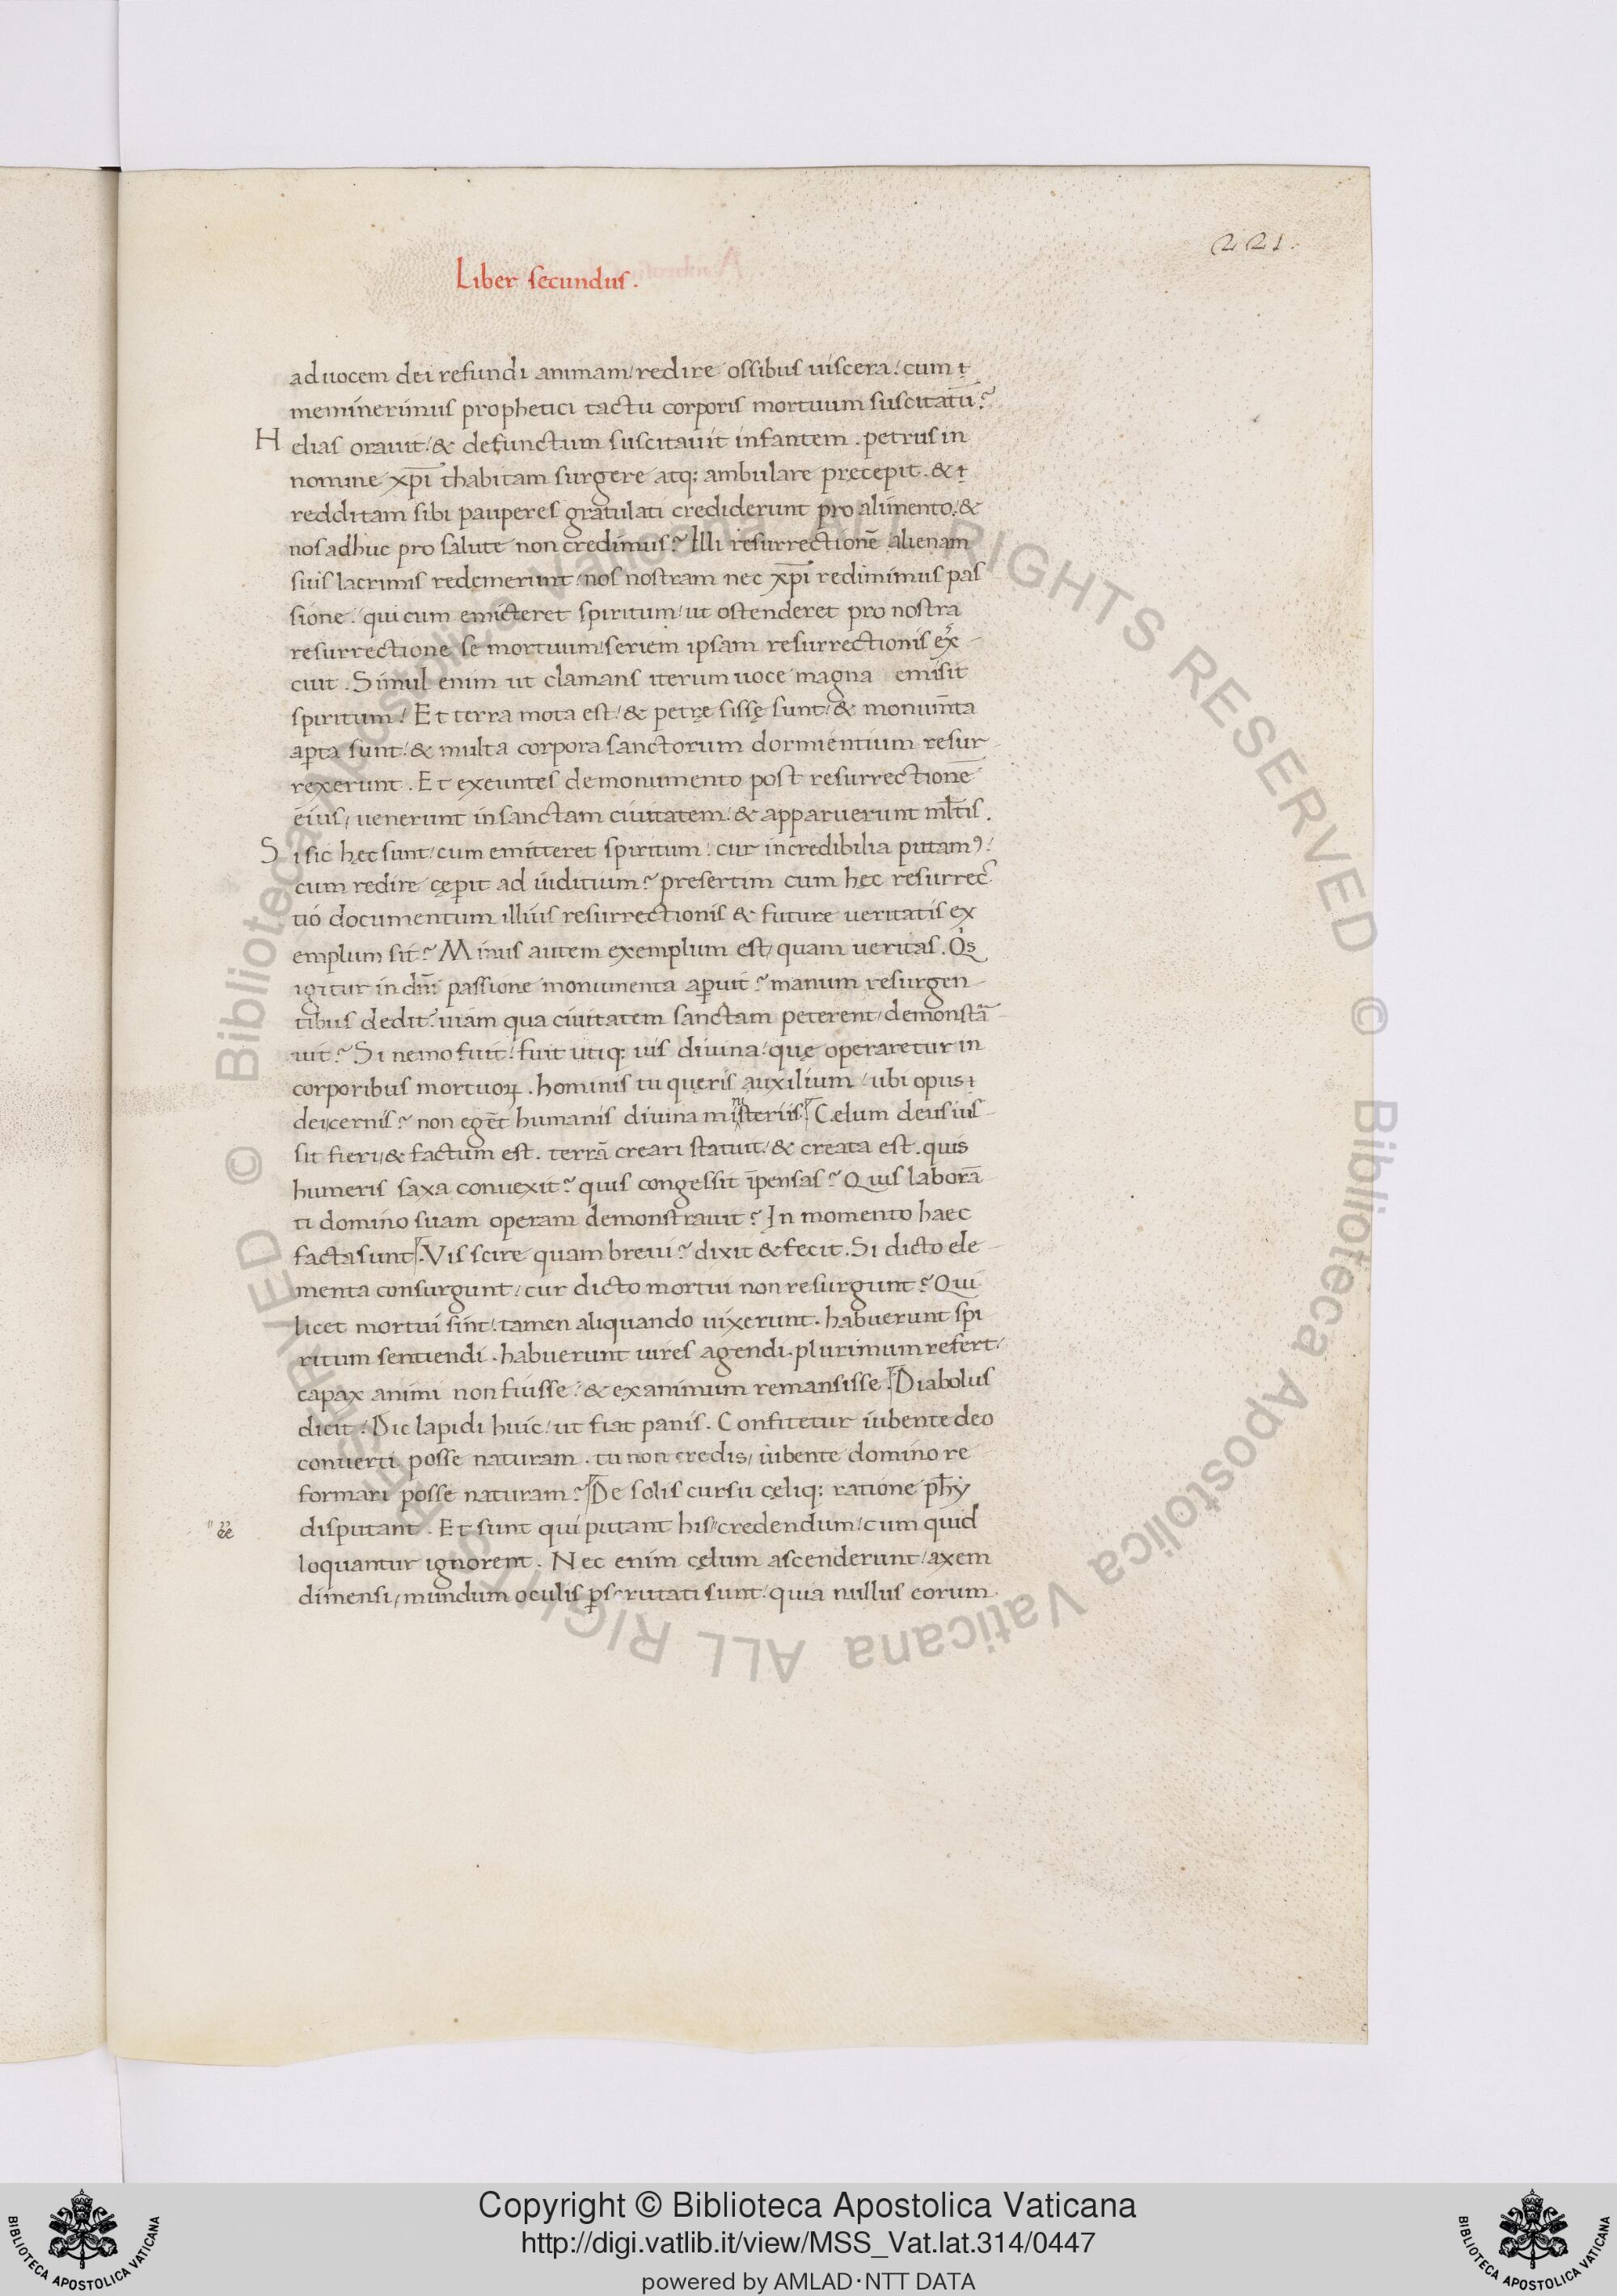 221.
Liber secundus.
ad uocem dei refundi animam/ redire ossibus uiscera/ cum ⁊
meminerimus prophetici tactu corporis mortuum suscitatū?
Helias orauit/ & defunctum suscitauit infantem. petrus in
nomine xp̄i thabitam surgere atq; ambulare precepit. & ⁊
redditam sibi pauperes gratulati crediderunt pro alimento/ &
nos adhuc pro salute non credimus? Illi resurrectionē alienam
suis lacrimis redemerunt/ nos nostram nec xp̄i redimimus pas
sione/ qui cum emicteret spiritum/ ut ostenderet pro nostra
resurrectione se mortuum/ seriem ipsam resurrectionis ex̊
cuit. Simul enim ut clamans iterum uoce magna emisit
spiritum/ Et terra mota est/ & petrę sissę sunt/ & monum̄ta
aꝑta sunt/ & multa corpora sanctorum dormientium resur-
rexerunt. Et exeuntes de monumento post resurrectionē
eius/ uenerunt in sanctam ciuitatem/ & apparuerunt ml̄tis.
Si sic hęc sunt/ cum emitteret spiritum/ cur incredibilia putamꝰ/
cum redire cęperit ad iuditium? presertim cum hęc resurrec-
tio documentum illius resurrectionis & future ueritatis ex
emplum sit? Minus autem exemplum est/ quam ueritas. Qis
igitur in dn̄i passione monumenta aꝑuit? manum resurgen-
tibus dedit? uiam qua ciuitatem sanctam peterent/ demonstrā-
uit? Si nemo fuit/ fuit utiq; uis diuina/ quę operaretur in
corporibus mortuoꝝ. hominis tu queris auxilium/ ubi opus ⁊
dei cernis? non egēt humanis diuina ministeriis. Cęlum deus ius-
sit fieri/ & factum est. terrā creari statuit/ & creata est. quis
humeris saxa conuexit? quis congessit īpensas? Quis laborā
ti domino suam operam demonstrauit? In momento haec
facta sunt. Vis scire quam breui? dixit & fecit. Si dicto ele-
menta consurgunt/ cur dicto mortui non resurgunt? Qui
licet mortui sint/ tamen aliquando uixerunt. habuerunt spi
ritum sentiendi. habuerunt uires agendi. plurimum refert/
capax animi non fuisse/ & exanimum remansisse. Diabolus
dicit/ Dic lapidi huic/ ut fiat panis. Confitetur iubente deo
conuerti posse naturam. tu non credis/ iubente domino re
formari posse naturam? De solis cursu cęliq; ratione ph̄y
disputant. Et sunt qui putant his credendum/ cum quid
loquantur ignorent. Nec enim cęlum ascenderunt/ axem
dimensi/ mundum oculis ꝑscrutati sunt/ quia nullus eorum
Copyright © Biblioteca Apostolica Vaticana
http://digi.vatlib.it/view/MSS_Vat.lat.314/0447
powered by AMLAD·NTT DATA
BIBLIOTECA APOSTOLICA VATICANA
BIBLIOTECA APOSTOLICA VATICANA
© Biblioteca Apostolica Vaticana ALL RIGHTS RESERVED © Biblioteca Apostolica Vaticana ALL RIGHTS RESERVED